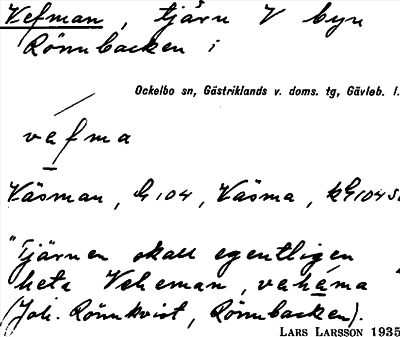 Vefman, tjärn V byn
Rönnbacken i
Ockelbo sn, Gästriklands v. doms. tg, Gävleb. l.
vafma
Väsman, G 104, Väsma, kG104S
"Tjärnen skall egentligen
heta Veheman, vehema"
(Joh. Rönnkvist, Rönnbacken).
LARS LARSSON 1935